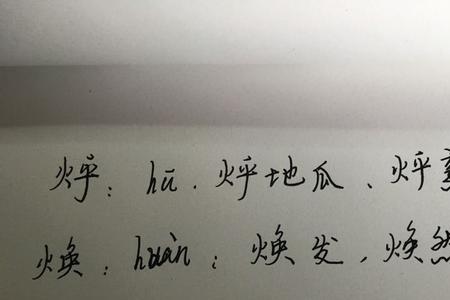 烀：hū．烀地瓜、烀
焕：huàn；焕发，焕然